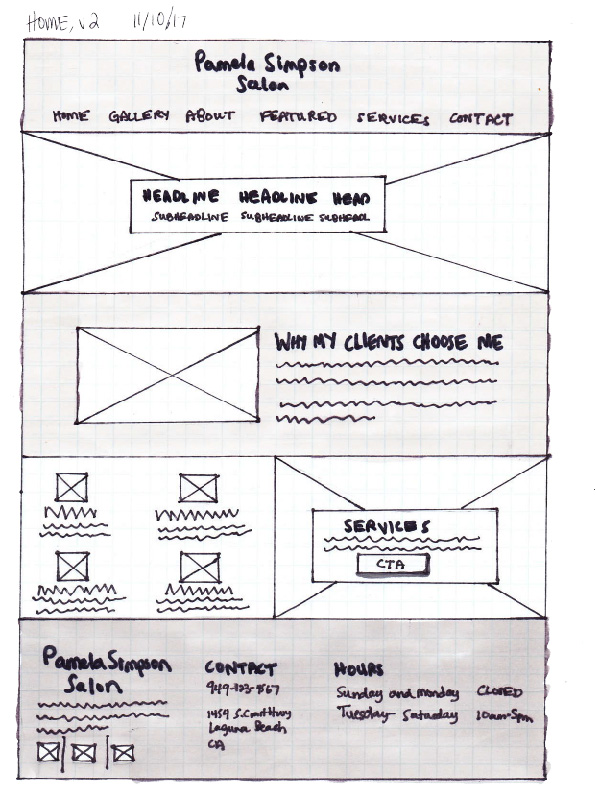 HOME, v2 11/10/17
Pamela Simpson
Salon
HOME GALLERY ABOUT FEATURED SERVICES CONTACT
HEADLINE HEADLINE HEAD
SUBHEADLINE SUBHEADLINE SUBHEADL
WHY MY CLIENTS CHOOSE ME
SERVICES
CTA
Pamela Simpson
Salon
CONTACT
Laguna Beach
CA
HOURS
Sunday and monday CLOSED
Tuesday- Saturday 10am-5pm